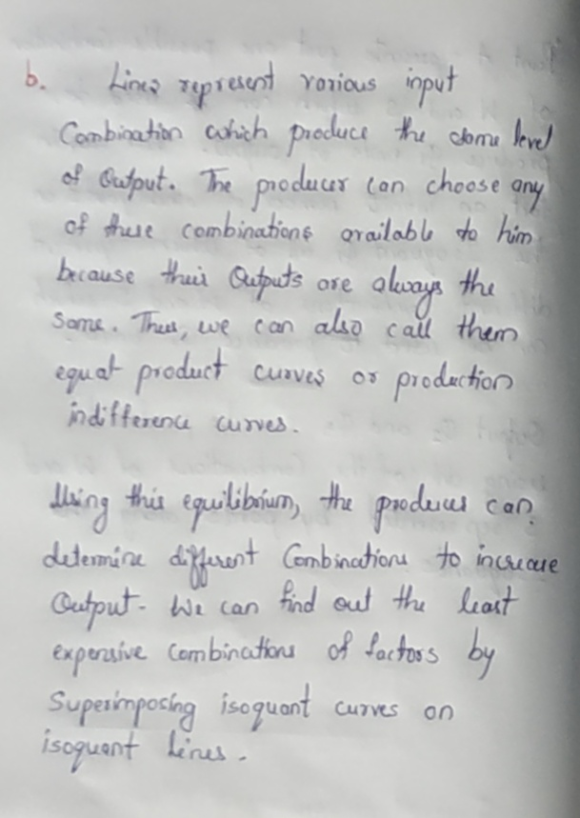 b. Lines represent various input
Combination which produce the same level
of Output. The producer can choose any
of these combinations available to him
because their Outputs are always the
same. Thus, we can also call them
equal product curves or production
indifference curves.
Using this equilibrium, the producer can
determine different Combinations to increase
Output. We can find out the least
expensive combinations of factors by
Superimposing isoquant curves on
isoquant lines.